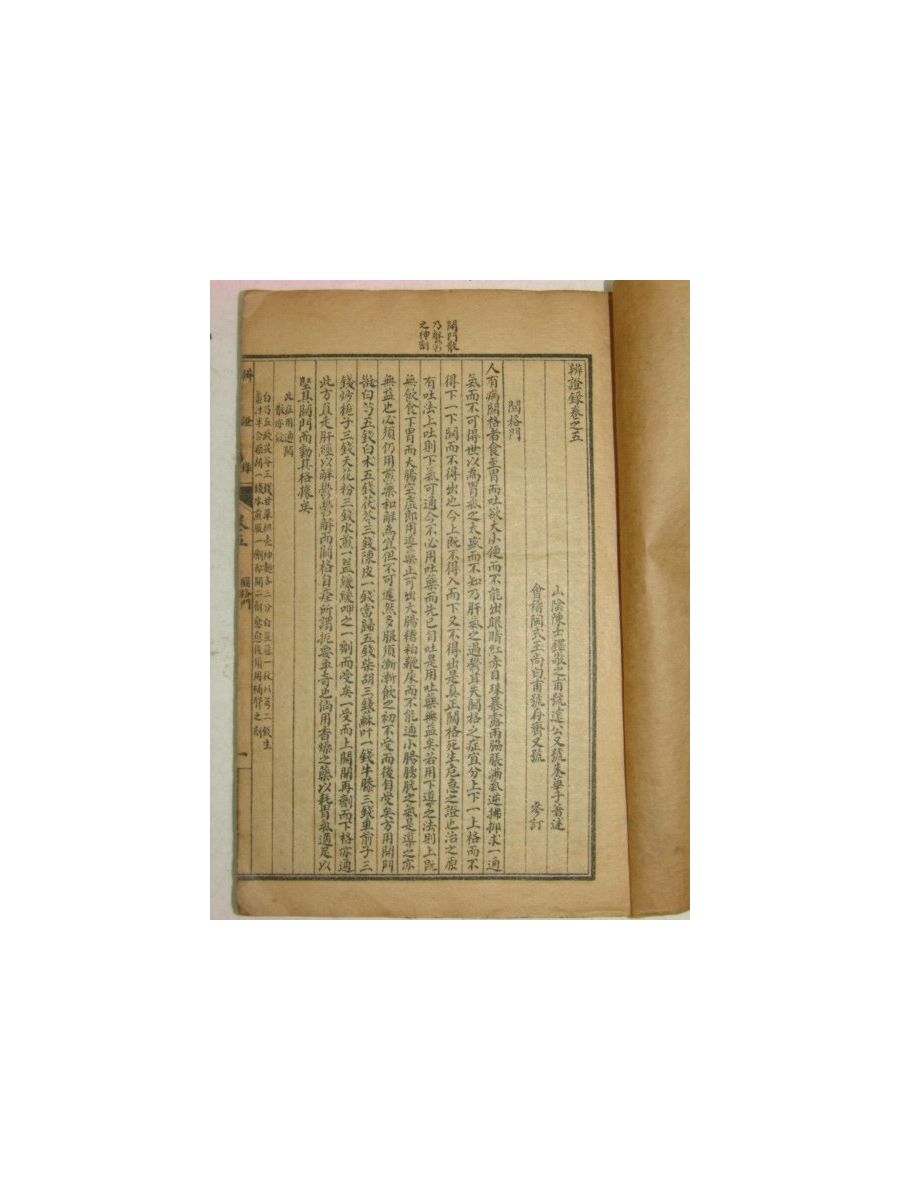 開門散
乃解鬱
之神劑
辨證錄卷之五
山陰陳士鐸敬之甫號遠公又號朱華子著述
會稽陶式玉尚白甫號存齋又號 參訂
關格門
人有病關格者食至胃而吐欲大小便而不能出眼睛紅赤目珠暴露而脇脹滿氣逆拂抑求一通
氣而不可得世以為胃氣之太盛而不知乃肝氣之過鬱耳夫關格之症宜分上下一上格而不
得下一下關而不得出也今上既不得入而下又不得出是真正關格死生危急之證也治之原
有吐法上吐則下氣可通今不必用吐藥而先已自吐是用吐藥無益矣若用下導之法則上既
無飲食下胃而大腸空虛即用導藥止可出大腸糟粕鞭屎而不能通小腸膀胱之氣是導之亦
無益也必須仍用煎藥和解為宜但不可遽然多服須漸漸飲之初不受而後自受矣方用開門
散白芍五錢白朮五錢茯苓三錢陳皮一錢當歸五錢柴胡三錢蘇葉一錢牛膝三錢車前子三
錢炒梔子三錢天花粉三錢水煎一盌緩緩呷之一劑而受矣一受而上關開再劑而下格亦通
此方直走肝經以解鬱鬱解而關格自痊所謂扼要爭奇也倘用香燥之藥以耗胃氣適足以
堅其關門而動其格據矣
此症用通關
散亦效
白芍五錢茯苓三錢甘草枳壳神麯各三分白荳蔻一枚川芎二錢生
薑汁半合柴胡一錢水煎服一劑即開一劑愈愈後須用補腎之劑
辨證錄
卷五
關格門
一